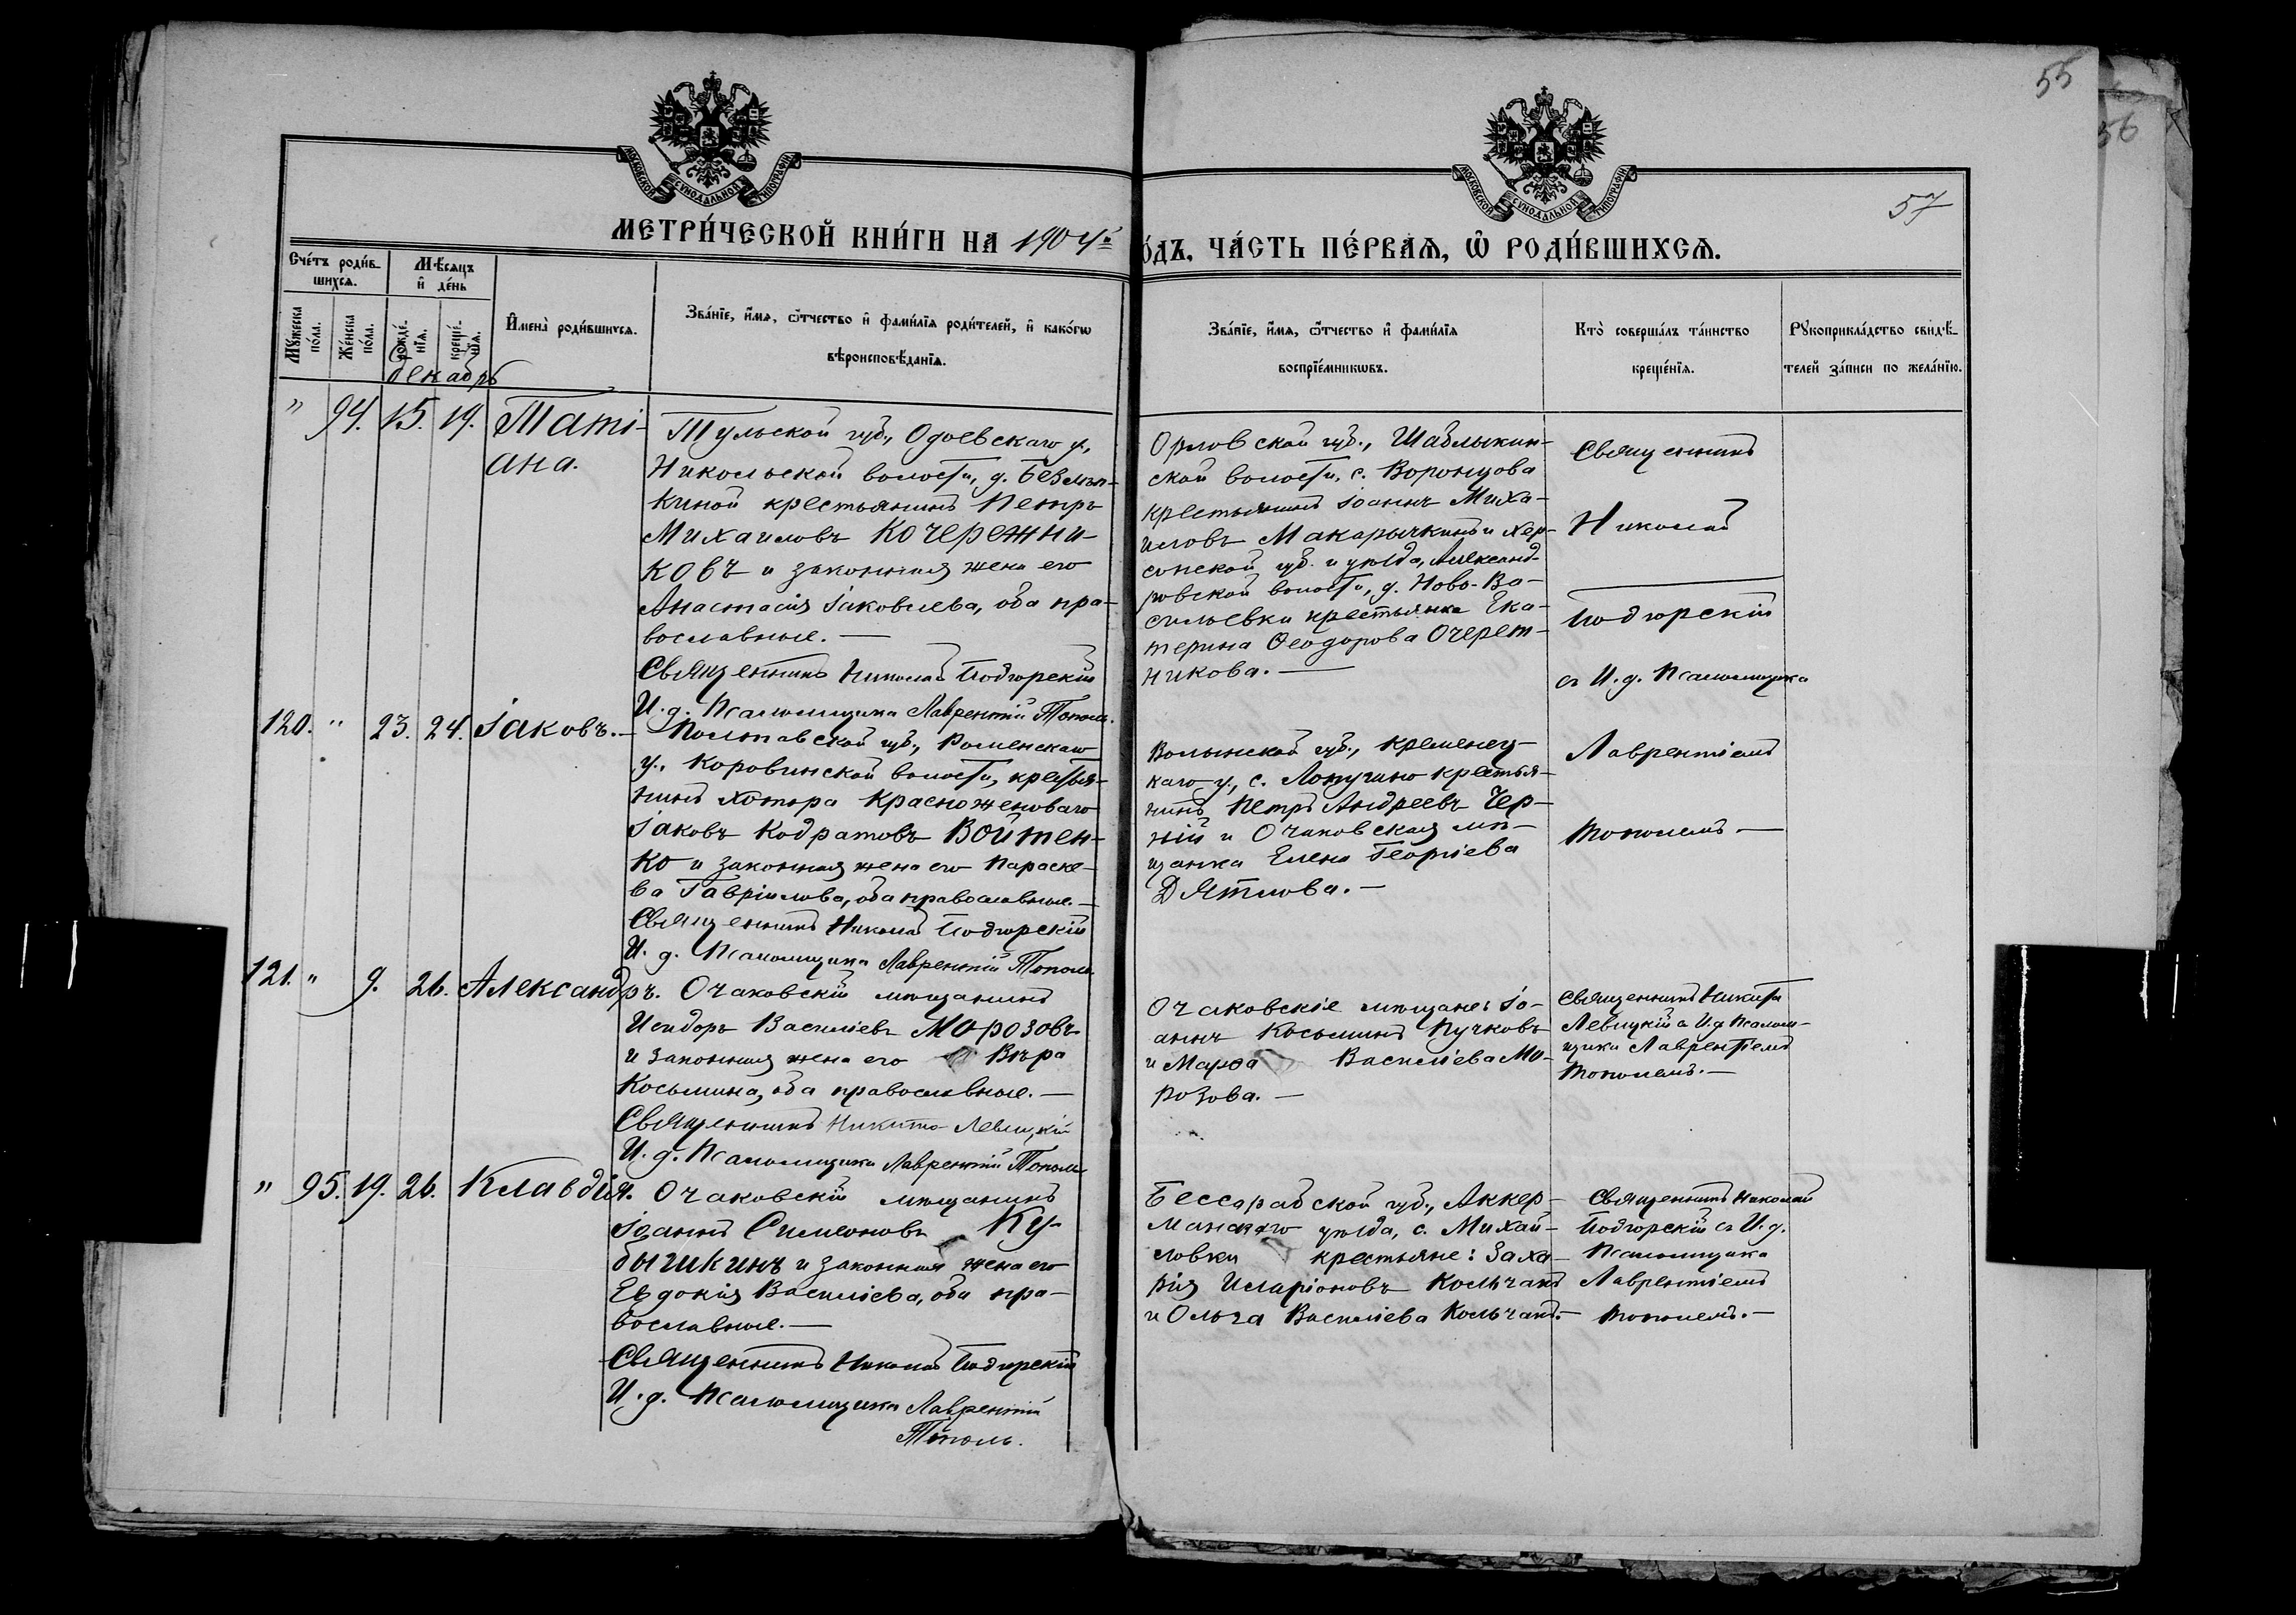 55
56
57
МОСКОВСКОЙ СѴНОДАЛЬНОЙ ТИПОГРАФІИ
МОСКОВСКОЙ СѴНОДАЛЬНОЙ ТИПОГРАФІИ
МЕТРИ́ЧЕСКОЙ КНИ́ГИ НА 1904й
О́ДЪ, ЧА́СТЬ ПЕ́РВАѦ, Ѽ РОДИ́ВШИХСѦ.
Сче́тъ роди́в-
шихсѧ.
Мѣ́сѧцъ
и҆ де́нь
Мꙋ́жеска
по́ла.
Же́нска
по́ла.
рожде́-
нїѧ.
креще́-
нїѧ.
И҆мена̀ роди́вшихсѧ.
Зва́нїе, и҆́мѧ, ѻ҆́тчество и҆ фами́лїѧ роди́телей, и҆ како́гѡ
вѣроисповѣ́данїѧ.
Зва́нїе, и҆́мѧ, ѻ҆́тчество и҆ фами́лїѧ
воспрїе́мникѡвъ.
Кто̀ соверша́лъ та́инство
креще́нїѧ.
Рꙋкоприкла́дство свидѣ́-
телей за́писи по жела́нїю.
Декабрь
" 94. 15. 19. Татi-
ана.
Тульской губ., Одоевскаго у.,
Никольской волости, д. Безмѣл-
киной крестьянинъ Петръ
Михаиловъ Кочережни-
ковъ и законная жена его
Анастасія Іаковлева, оба пра-
вославные. —
Священникъ Николай Подгорскій
И. д. Псаломщика Лаврентій Тополь.
Орловской губ., Шаблыкин-
ской волости, с. Воронцова
крестьянинъ Іоаннъ Миха-
иловъ Макарычкинъ и Хер-
сонской губ. и уѣзда, Александ-
ровской волости, д. Ново-Ва-
сильевки крестьянка Ека-
терина Ѳеодорова Очерет-
никова. —
Священникъ
Николай
Подгорскій
съ И. д. Псаломщика
Лаврентіемъ
Тополемъ —
120. " 23. 24. Іаковъ. —
Полтавской губ., Роменскаго
у., Коровинской волости, крестья-
нинъ хутора Красноженоваго
Іаковъ Кодратовъ Войтен-
ко и законная жена его Параске-
ва Гавріилова, оба православные. —
Священникъ Николай Подгорскій
И. д. Псаломщика Лаврентій Тополь
Волынской губ., Кременец-
каго у., с. Лопушно крестья-
нинъ Петръ Андреевъ Чер-
ній и Очаковская мѣ-
щанка Елена Георгіева
Дятлова. —
121. " 9. 26. Александръ.
Очаковскій мѣщанинъ
Исидоръ Василіевъ Морозовъ
и законная жена его Вѣра
Косьмина, оба православные. —
Священникъ Никита Левицкій
И. д. Псаломщика Лаврентій Тополь
Очаковскіе мѣщане: Іо-
аннъ Косьминъ Пучковъ
и Марѳа Василіева Мо-
розова. —
Священникъ Никита
Левицкій съ И. д. Псалом-
щика Лаврентіемъ
Тополемъ. —
" 95. 19. 26. Клавдія.
Очаковскій мѣщанинъ
Іоаннъ Симеоновъ Ку-
бышкинъ и законная жена его
Евдокія Василіева, оба пра-
вославные. —
Священникъ Николай Подгорскій
И. д. Псаломщика Лаврентій
Тополь.
Бессарабской губ., Аккер-
манскаго уѣзда, с. Михай-
ловки крестьяне: Заха-
рія Иларіоновъ Колычанъ
и Ольга Василіева Колычанъ. —
Священникъ Николай
Подгорскій съ И. д.
Псаломщика
Лаврентіемъ
Тополемъ. —